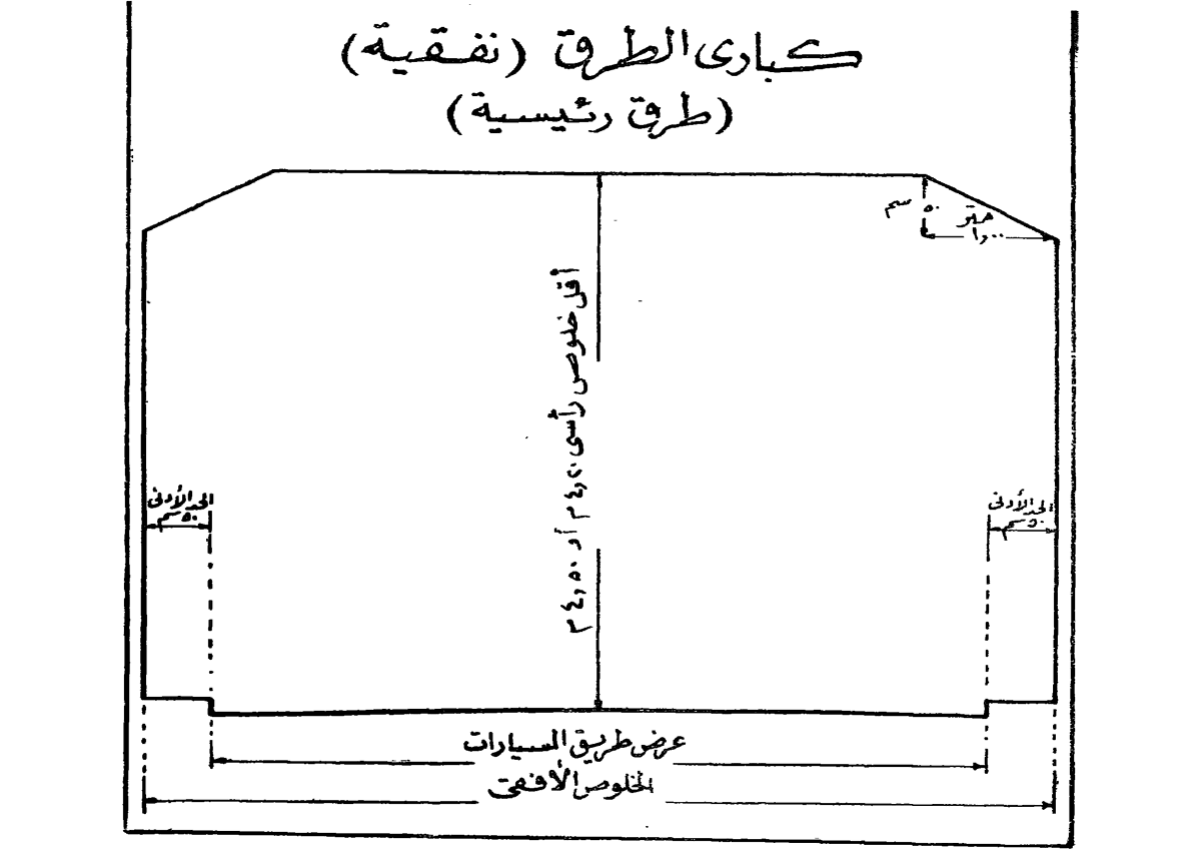 كبارى الطرق (نفقية)
(طرق رئيسية)
٥٠ سم
متر
١٫٠٠
أقل خلوص رأسى ٤٫٢٠ م أو ٤٫٥٠ م
الحد الأدنى
٥٠ سم
الحد الأدنى
٥٠ سم
عرض طريق السيارات
الخلوص الأفقى